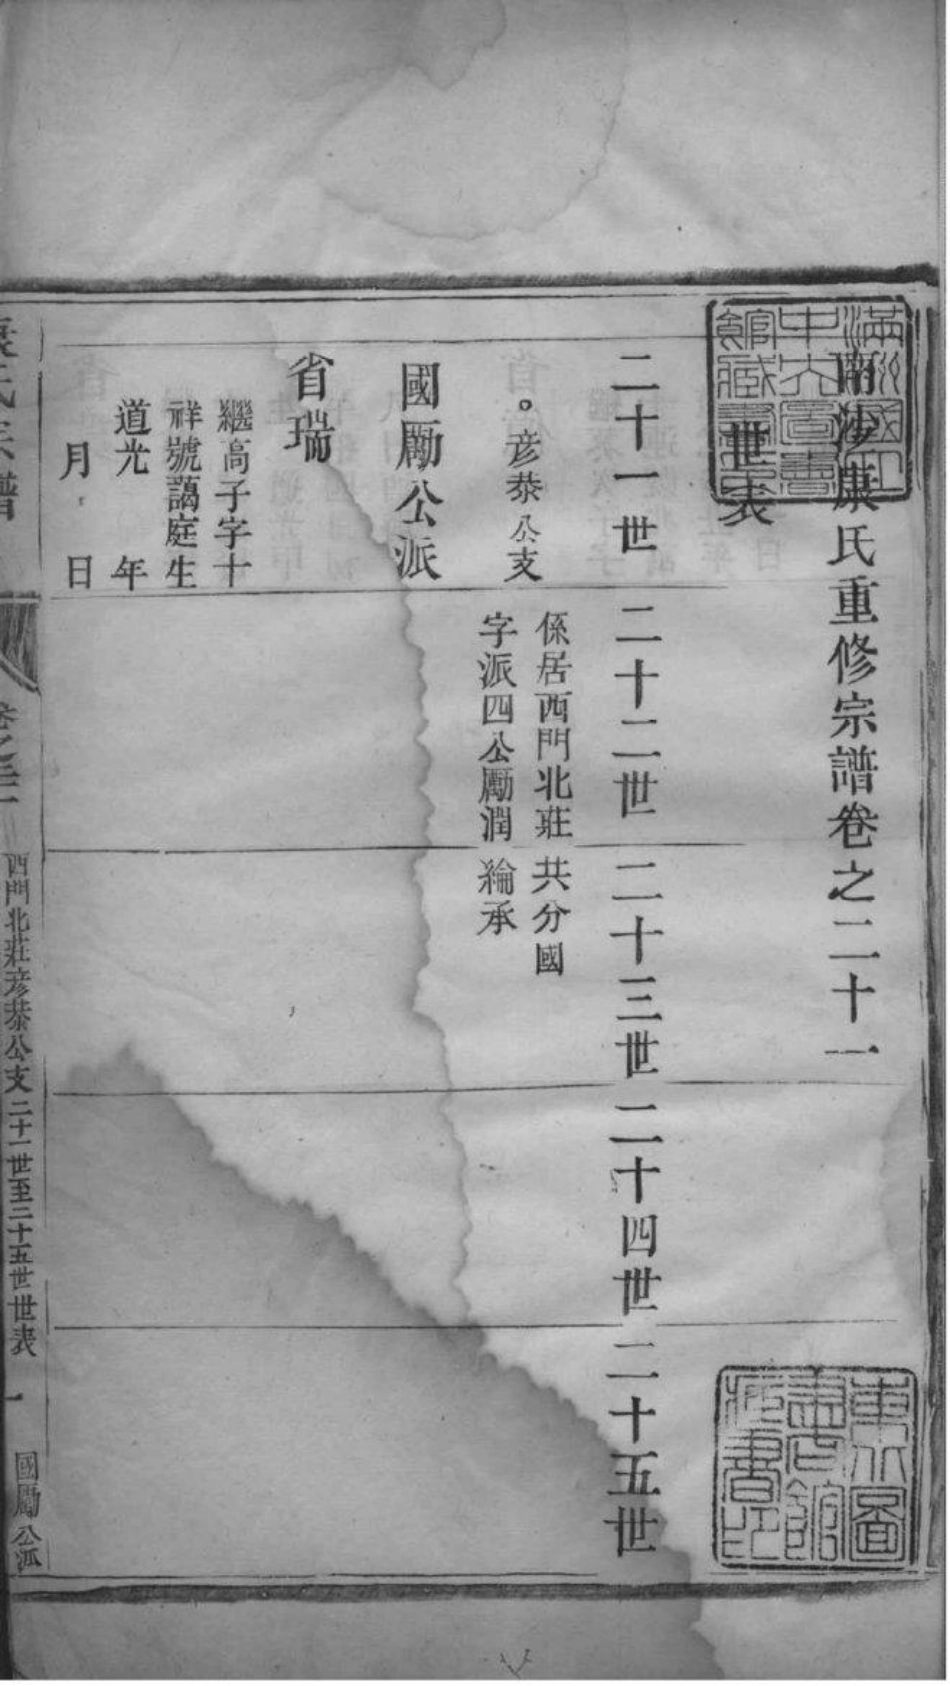 南沙康氏重修宗譜卷之二十一
世表
二十一世 二十二世 二十三世 二十四世 二十五世
。彥恭公支 係居西門北莊共分國
字派四公勵潤綸承
國勵公派
省瑞
繼高子字十
祥號藹庭生
道光 年
月 日
康氏宗譜 卷之二十一 西門北莊彥恭公支二十一世至二十五世世表 一 國勵公派
滿洲國立
中央圖書
館藏書
東北圖
書館
藏書印